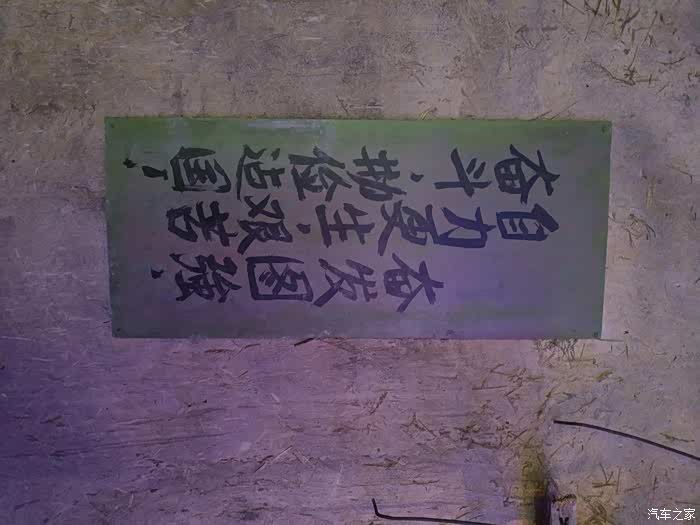 奋发图强,
自力更生,艰苦
奋斗,勤俭建国!
汽车之家